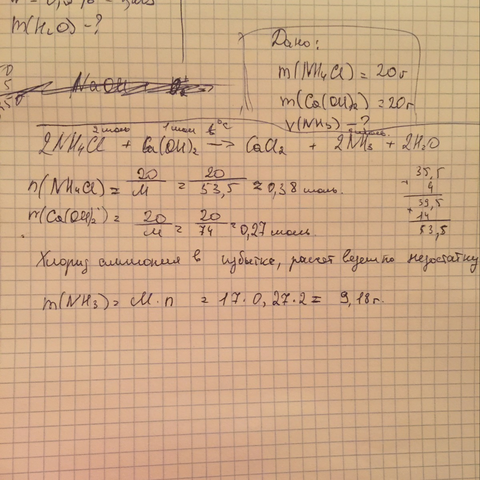 m(H₂O) - ?
Дано:
m(NH₄Cl) = 20г
m(Ca(OH)₂) = 20г
v(NH₃) - ?
2 моль 1 моль t°C
2NH₄Cl + Ca(OH)₂ → CaCl₂ + 2NH₃ + 2H₂O
n(NH₄Cl) = 20/M = 20/53,5 = 0,38 моль.
m(Ca(OH)₂) = 20/M = 20/74 = 0,27 моль.
35,5
+ 4
39,5
+ 14
53,5
Хлорид аммония в избытке, расчет ведем по недостатку
m(NH₃) = M · n = 17 · 0,27 · 2 = 9,18 г.